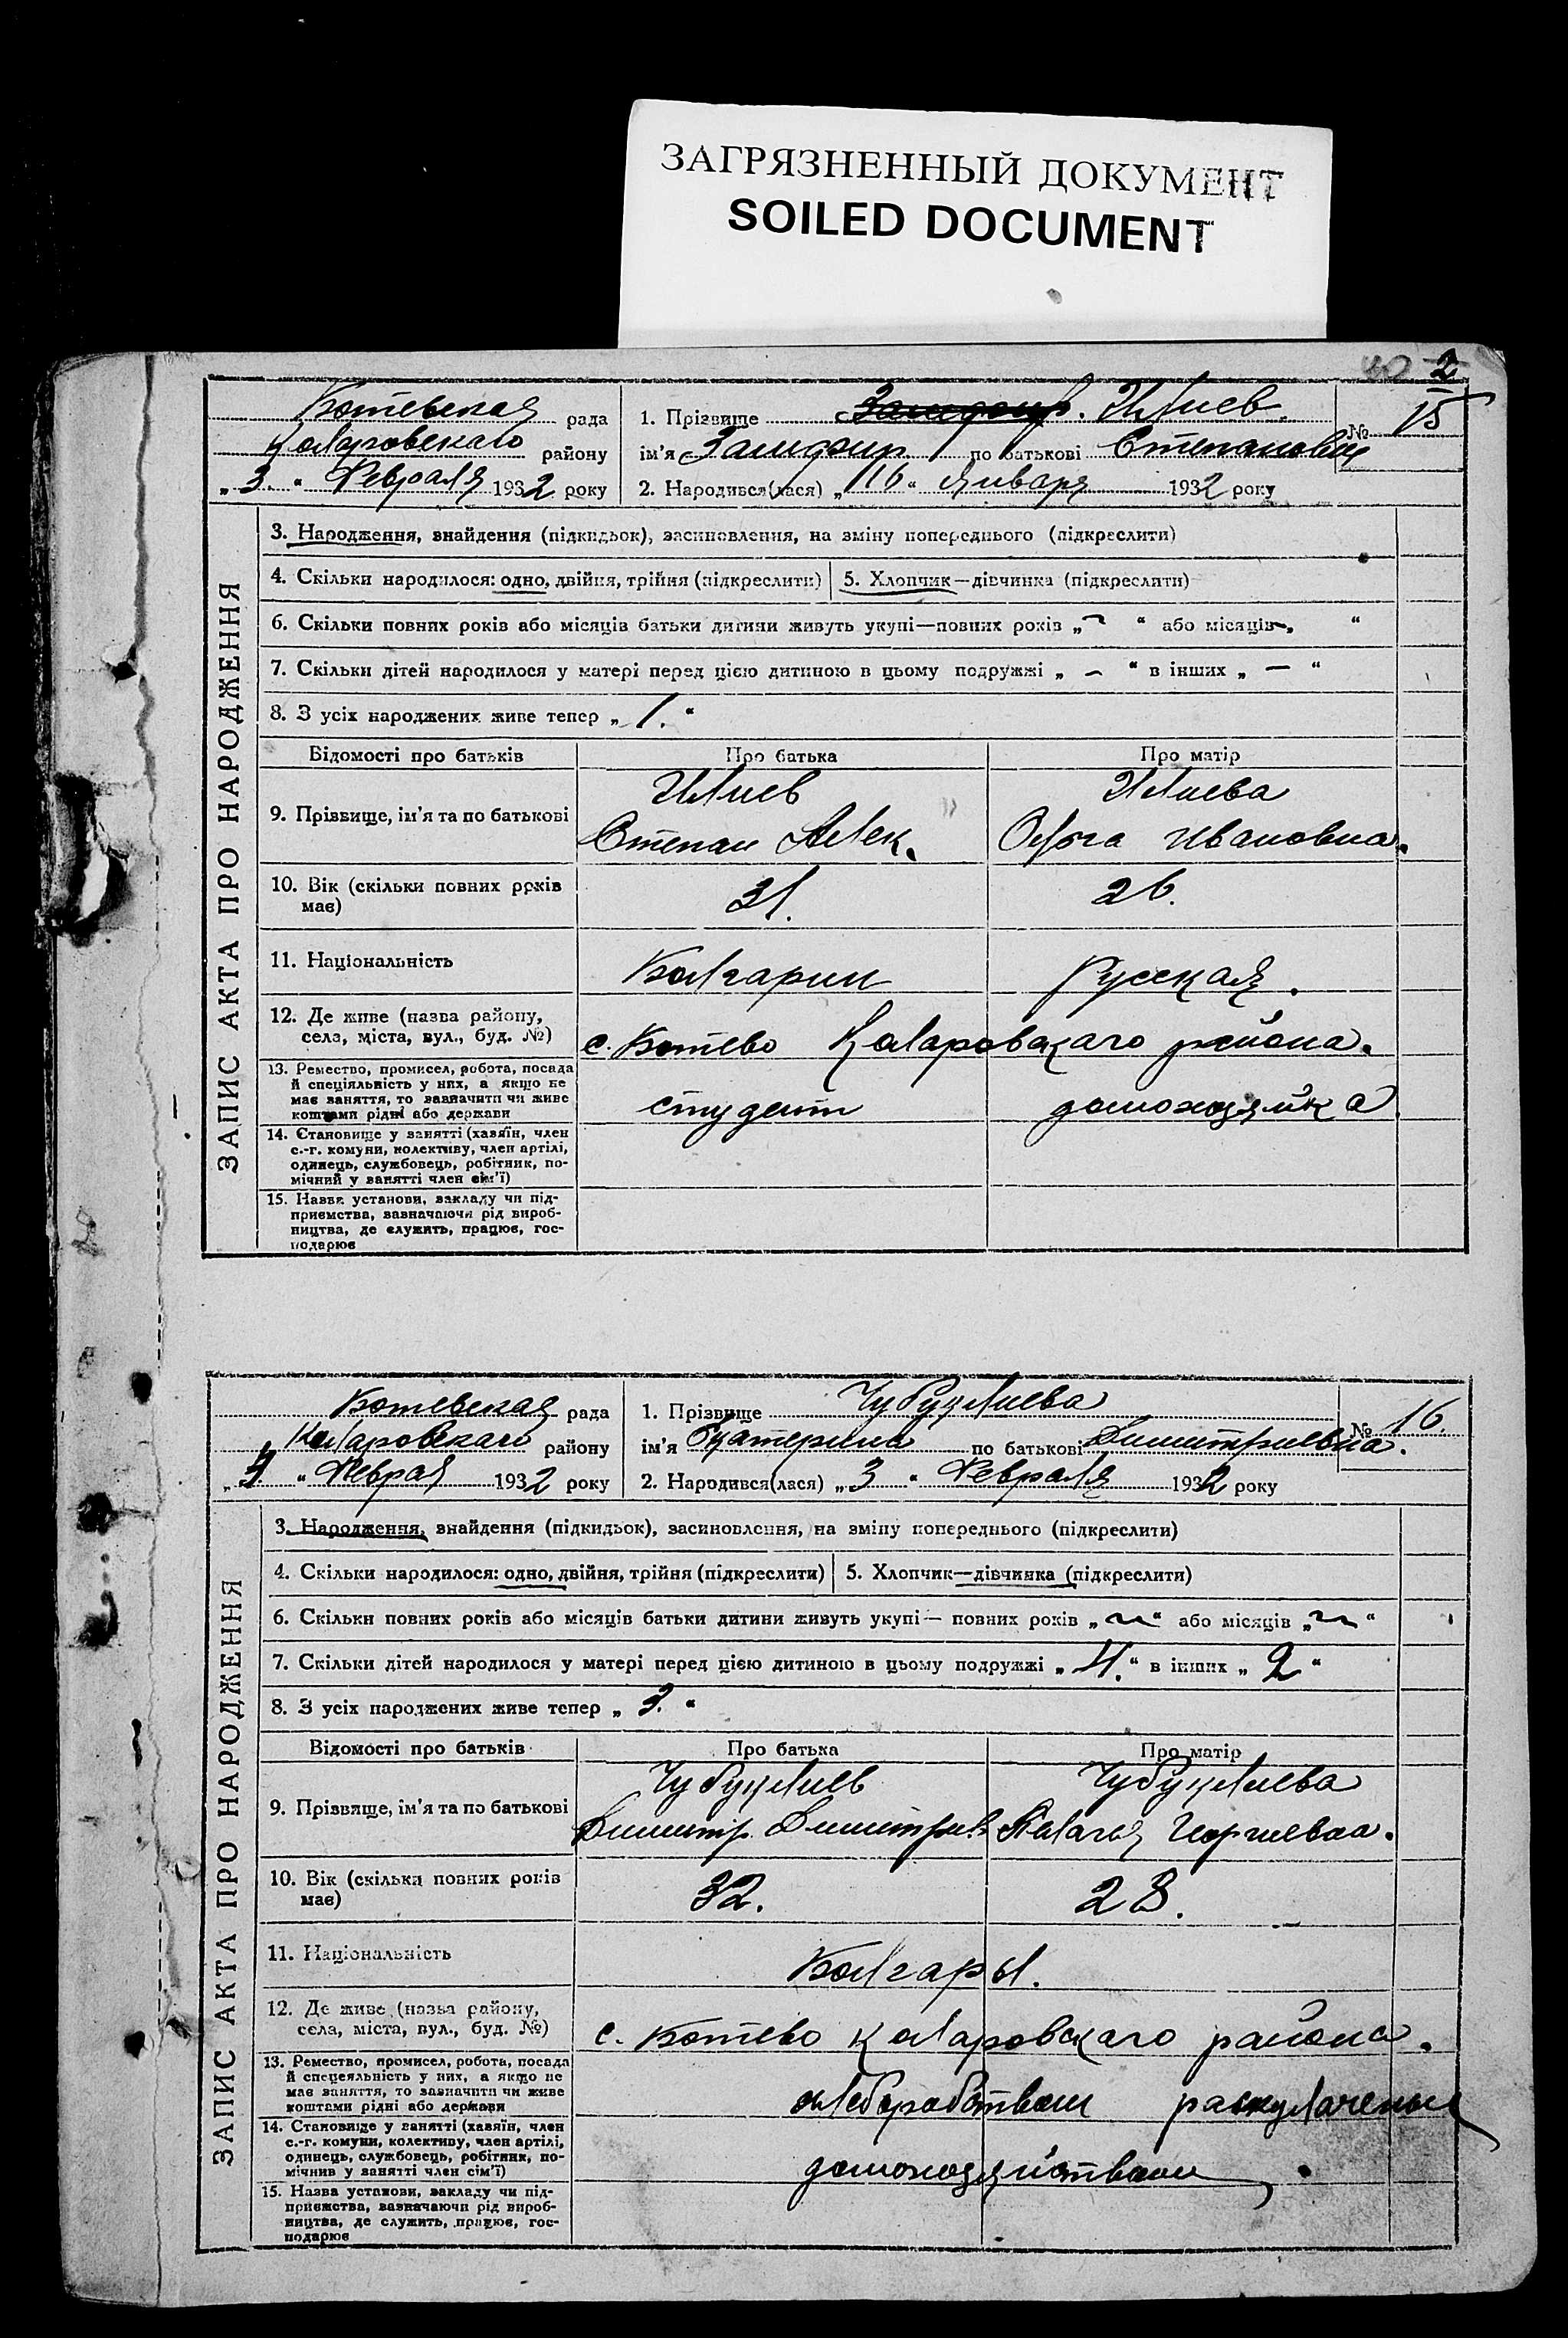 ЗАГРЯЗНЕННЫЙ ДОКУМЕНТ
SOILED DOCUMENT
2
Ботевская рада
Коларовскаго району
„3.“ Февраля 1932 року
1. Прізвище Замфир. Илиев.
ім'я Замфир по батькові Степанович
2. Народився(лася) „16“ Января 1932 року
№ 15
ЗАПИС АКТА ПРО НАРОДЖЕННЯ
3. Народження, знайдення (підкидьок), засиновлення, на зміну попереднього (підкреслити)
4. Скільки народилося: одно, двійня, трійня (підкреслити)
5. Хлопчик—дівчинка (підкреслити)
6. Скільки повних років або місяців батьки дитини живуть укупі—повних років „ ~ “ або місяців „ “
7. Скільки дітей народилося у матері перед цією дитиною в цьому подружжі „ – “ в інших „ – “
8. З усіх народжених живе тепер „ 1. “
Відомості про батьків Про батька Про матір
9. Прізвище, ім'я та по батькові
Илиев
Степан Алек.
Илиева
Ольга Ивановна.
10. Вік (скільки повних років
має)
31. 26.
11. Національність Болгарин Русская.
12. Де живе (назва району,
села, міста, вул., буд. №)
с. Ботево Коларовскаго района.
13. Ремество, промисел, робота, посада
й спеціяльність у них, а якщо не
має заняття, то зазначити чи живе
коштами рідні або держави
студент домохозяйка
14. Становище у занятті (хазяїн, член
с.-г. комуни, колективу, член артілі,
одинець, службовець, робітник, по-
мічний у занятті член сім'ї)
15. Назва установи, закладу чи під-
приємства, зазначаючи рід вироб-
ництва, де служить, працює, гос-
подарює
Ботевская рада
Коларовскаго району
„4.“ Феврая 1932 року
1. Прізвище Чубуклиева
ім'я Екатерина по батькові Димитриевна.
2. Народився(лася) „3“ Февраля 1932 року
№ 16.
ЗАПИС АКТА ПРО НАРОДЖЕННЯ
3. Народження, знайдення (підкидьок), засиновлення, на зміну попереднього (підкреслити)
4. Скільки народилося: одно, двійня, трійня (підкреслити)
5. Хлопчик—дівчинка (підкреслити)
6. Скільки повних років або місяців батьки дитини живуть укупі — повних років „ ~ “ або місяців „ ~ “
7. Скільки дітей народилося у матері перед цією дитиною в цьому подружжі „ 4. “ в інших „ 2 “
8. З усіх народжених живе тепер „ 3. “
Відомості про батьків Про батька Про матір
9. Прізвище, ім'я та по батькові
Чубуклиев
Димитр. Димитрив.
Чубуклиева
Пелагея Георгиевна.
10. Вік (скільки повних років
має)
32. 28.
11. Національність Болгары.
12. Де живе (назва району,
села, міста, вул., буд. №)
с. Ботево Коларовскаго района.
13. Ремество, промисел, робота, посада
й спецеяльність у них, а якщо не
має заняття, то зазначити чи живе
коштами рідні або держави
хлеборобством раскулачены
14. Становище у занятті (хазяїн, член
с.-г. комуни, колективу, член артілі,
одинець, службовець, робітник, по-
мічнив у занятті член сім'ї)
домохозяйством
15. Назва установи, закладу чи під-
приємства, зазначаючи рід вироб-
ництва, де служить, працює, гос-
подарює